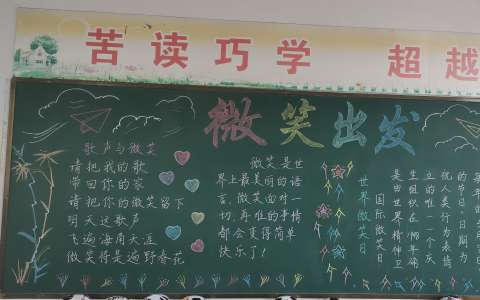 苦读巧学 超越
微笑出发
歌声与微笑
请把我的歌
带回你的家
请把你的微笑留下
明天这歌声
飞遍海角天涯
微笑将是遍野春花
微笑是世
界上最美丽的语
言,微笑面对一
切,再难的事情
都会变得简单
快乐了!
世界微笑日
国际微笑日
是由世界精神卫
生组织在1948年确
立的唯一一个庆
祝人类行为表情
的节日,日期为